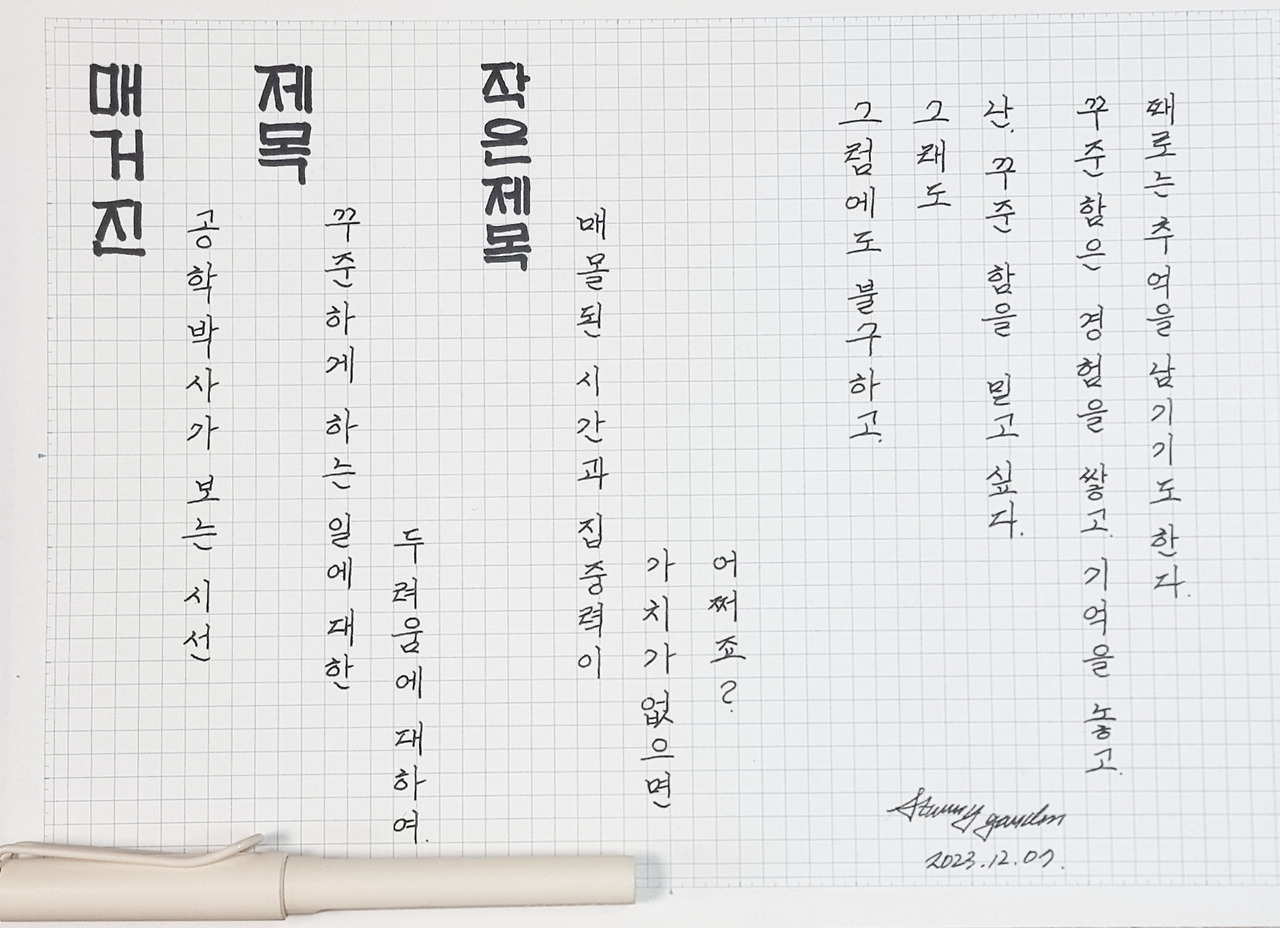 매거진
공학박사가 보는 시선
제목
꾸준하게 하는 일에 대한
두려움에 대하여.
작은제목
매몰된 시간과 집중력이
가치가 없으면
어쩌죠?
그럼에도 불구하고.
그래도
난, 꾸준함을 믿고 싶다.
꾸준함은 경험을 쌓고. 기억을 놓고.
때로는 추억을 남기기도 한다.
2023.12.07.